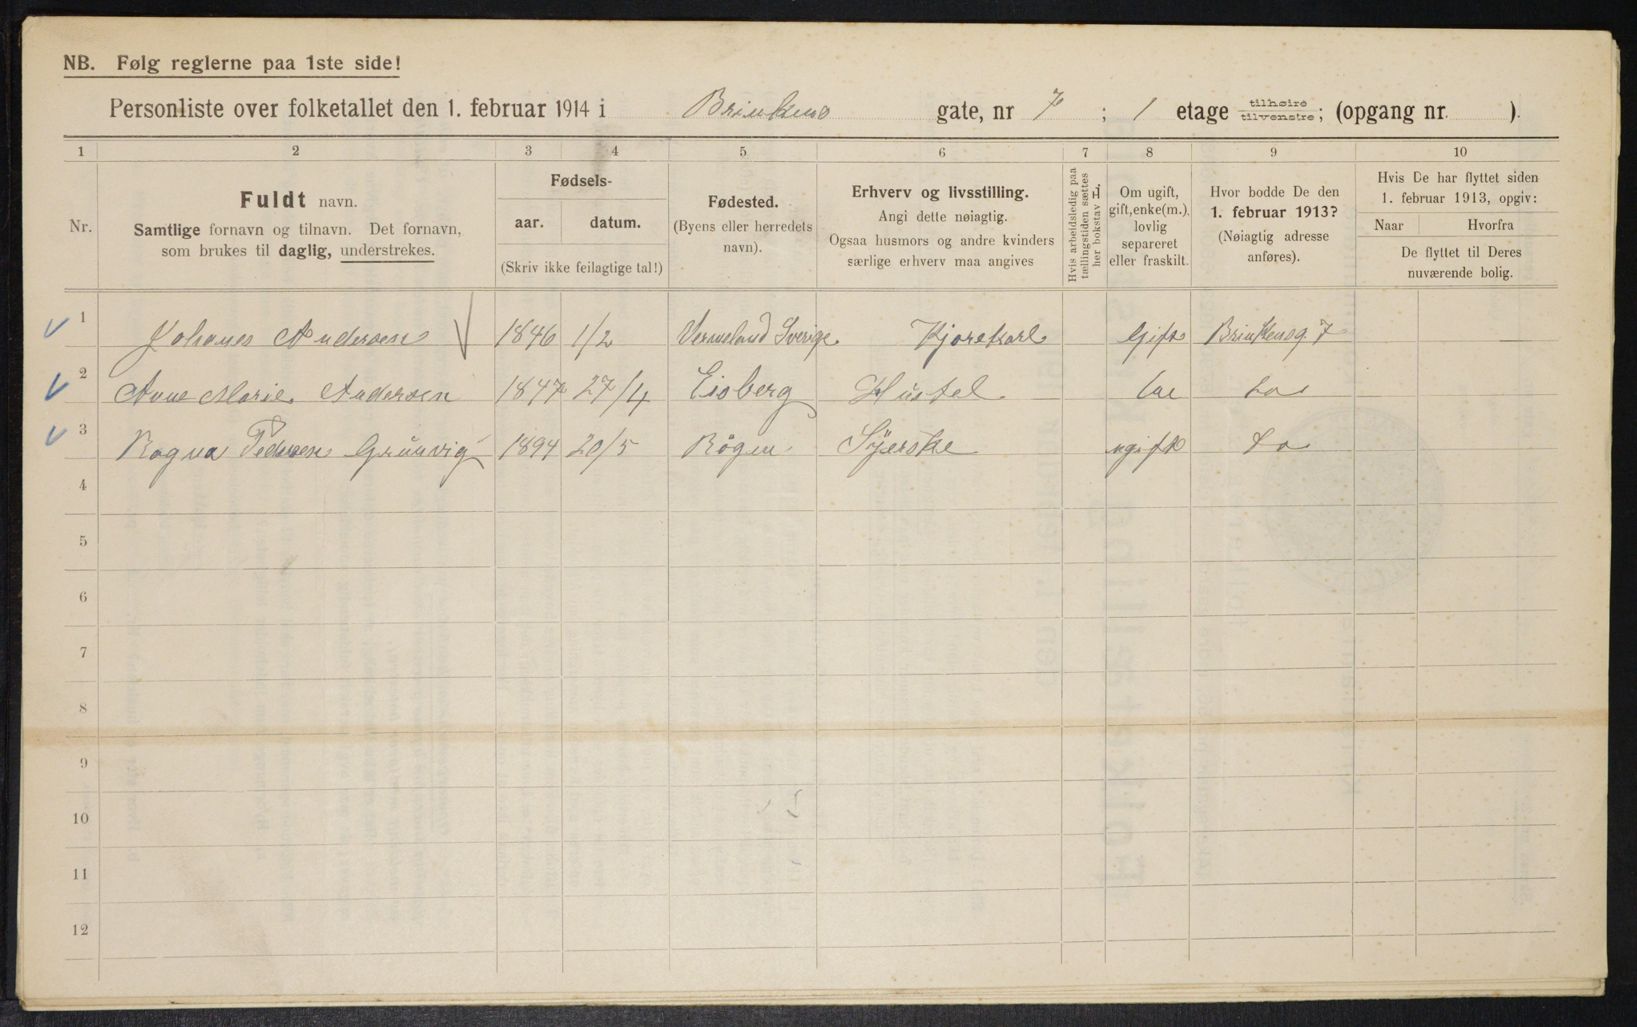 NB. Følg reglerne paa 1ste side!
Personliste over folketallet den 1. februar 1914 i Brinkens gate, nr 7 ; 1 etage tilhøire tilvenstre; (opgang nr. ).
1 2 3 4 5 6 7 8 9 10
Nr.
Fuldt navn.
Samtlige fornavn og tilnavn. Det fornavn,
som brukes til daglig, understrekes.
Fødsels-
aar. datum.
(Skriv ikke feilagtige tal!)
Fødested.
(Byens eller herredets
navn).
Erhverv og livsstilling.
Angi dette nøiagtig.
Ogsaa husmors og andre kvinders
særlige erhverv maa angives
Hvis arbeidsledig paa
tællingstiden sættes
her bokstav
Om ugift,
gift, enke(m.),
lovlig
separeret
eller fraskilt.
Hvor bodde De den
1. februar 1913?
(Nøiagtig adresse
anføres).
Hvis De har flyttet siden
1. februar 1913, opgiv:
Naar Hvorfra
De flyttet til Deres
nuværende bolig.
1 Johanes Andersen 1846 1/2 Vermeland Sverige Kjørekarl Gift Brinkensg. 7
2 Anne Marie Andersen 1847 27/4 Eisberg Hustel do
3 Ragna Pedersen Grünvig 1894 20/5 Røgen Syerske ugift do
4
5
6
7
8
9
10
11
12